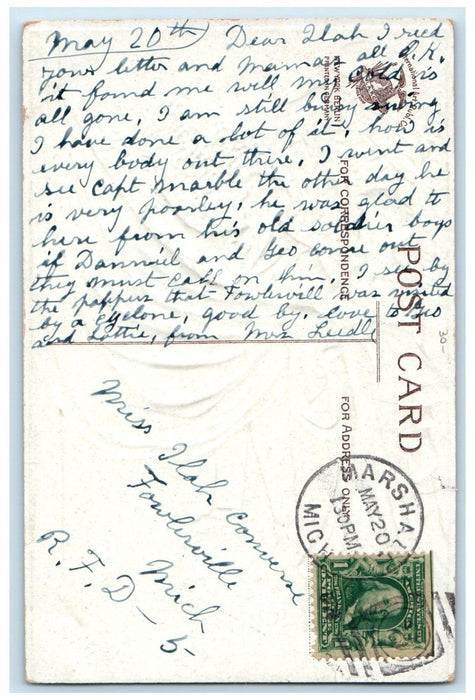 May 20th Dear Ilah I rced
your letter and Mamas all O.K.
it found me well my cold is
all gone, I am still busy swing
I have done a lot of it, how is
every body out there, I went and
see Capt Marble the other day he
is very poorley, he was glad to
here from his old soldier boys
if Danniel and Geo come out
they must call on him, I see by
the pappers that Fowlervill was
by a cyclone, good by. love to Geo
and Lottie, from Mrs
POST CARD
FOR CORRESPONDENCE
FOR ADDRESS ONLY
NEW YORK BERLIN
PRINTED IN GERMANY
30-
Miss Ilah Converse
Fowlerville
Mich
R. F. D - 5
MARSHALL
MAY 20
130 PM
MICH
1